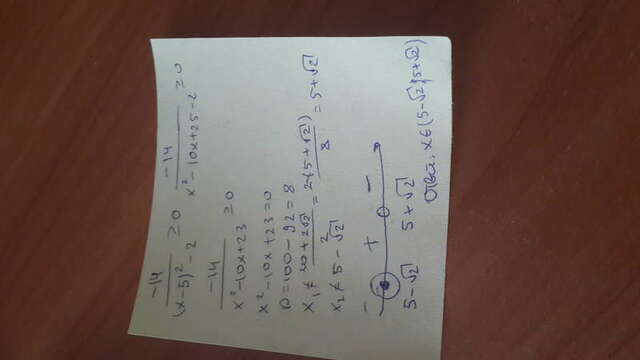 -14/((x-5)²-2) ≥0 -14/(x²-10x+25-2) ≥0
-14/(x²-10x+23) ≥0
x²-10x+23=0
D=100-92=8
x₁≠(10+2√2)/2=2(5+√2)/8=5+√2
x₂≠5-√2
- + -
5-√2 5+√2
Ответ. x∈(5-√2;5+√2)